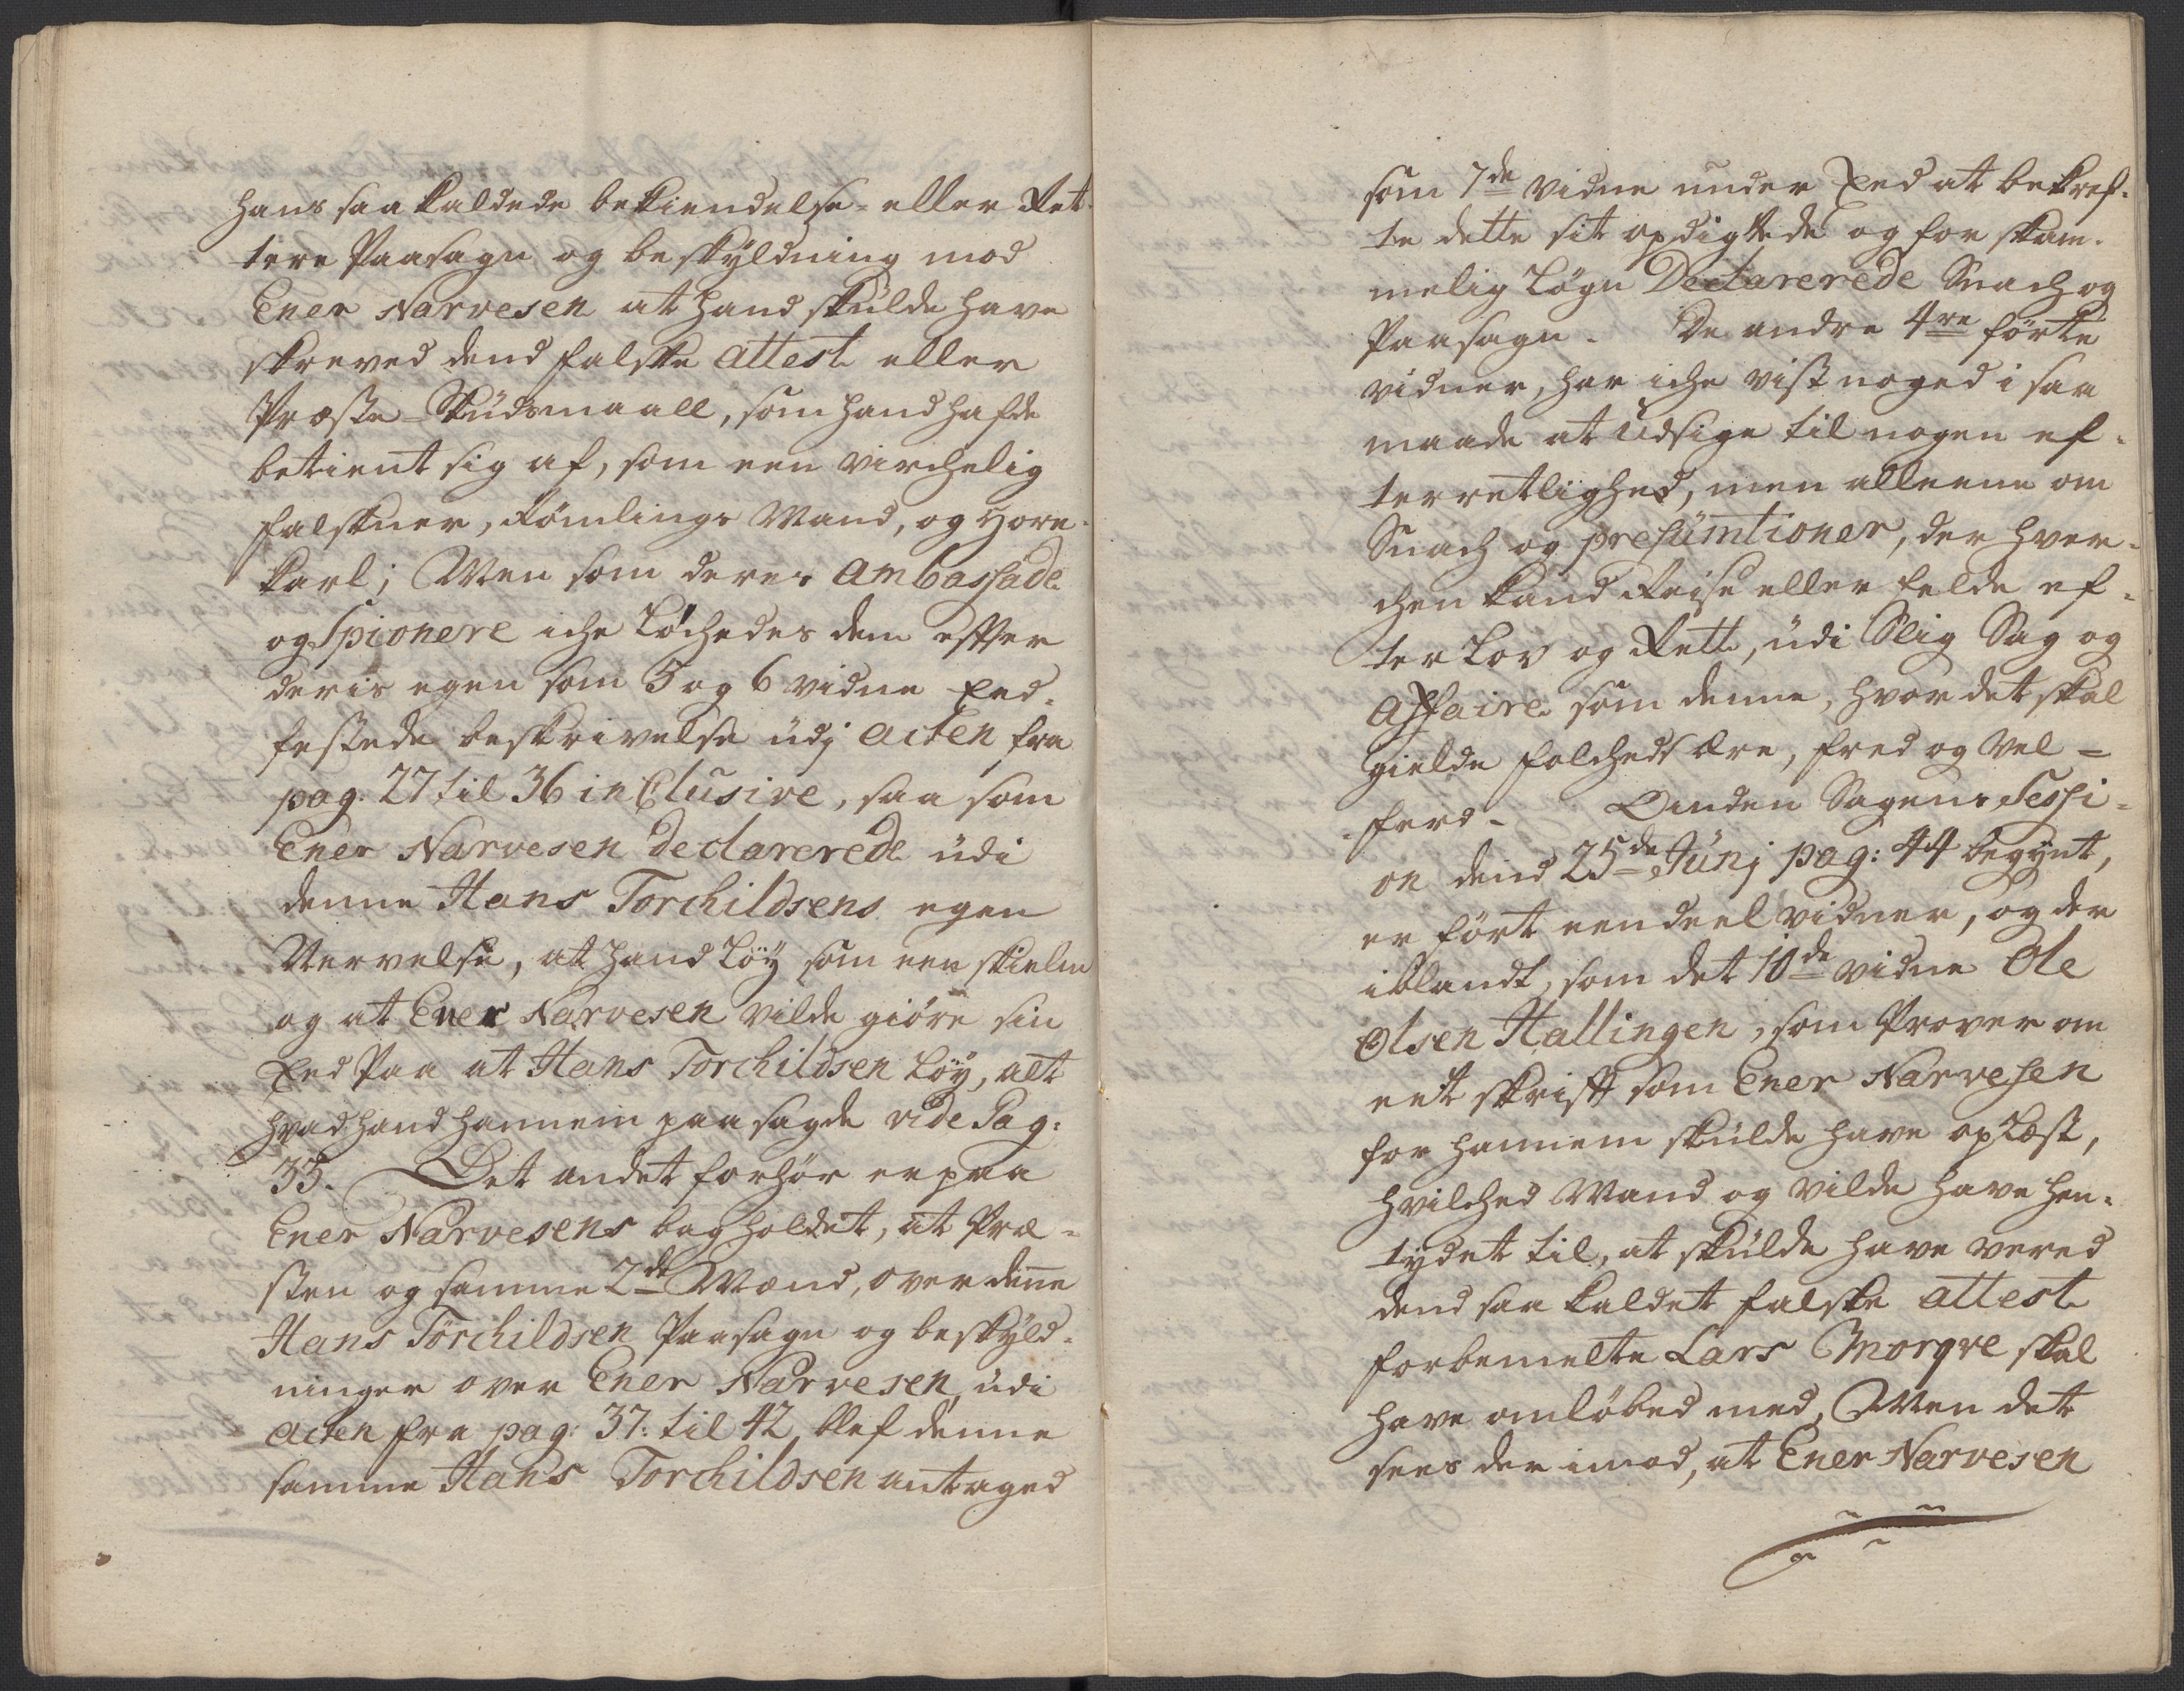 hans saa kaldede bekiendelse eller Ret-
tere Paasagn og beskyldning mod
Ener Narvesen at hand skulde have
skreved dend falske attest eller
Præste-Skudsmaall, som hand hafde
betient sig af, som een virchelig
falskner, Rømlings Mand, og Hore-
karl; Men som deres Ambassade
og Spionere iche Løchedes dem effter
deris egen som 5 og 6 vidne Eed-
festede beskrivelse udj acten fra
pag. 27 til 36 in Clusive, saa som
Ener Narvesen declarerede udi
denne Hans Torchildsens egen
Nervelse, at hand Löy som een skielm
og at Ener Narvesen vilde giöre sin
Eed Paa at Hans Torchildsen Löy, alt
hvad hand hannem paa sagde vide Pag:
35. Det andet forhör er paa
Ener Narvesens bag holdet, at Præ-
sten og samme 2de Mænd, over denne
Hans Torchildsen Paasagn og beskyld-
ninger over Ener Narvesen, udi
acten fra pag: 37: til 42, blef denne
samme Hans Torchildsen antaged
som 7de vidne under Eed at bekref-
te dette sit opdigtede og for skam-
melig Løgn Declarerede Snach og
Paasagn. De andre 4re förte
vidner, har iche vist noged i saa
maade at Udsige til nogen ef-
terretlighed, men alleene om
Snach og presumtioner, der hver-
chen kand Reise eller felde ef-
ter Lov og Rett, udi Slig Sag og
Affaire som denne, hvor det skal
gielde folcheds ære, fred og Vel-
ferd. Anden Sagens Sessi-
on dend 25de Junj pag: 44 begynt,
er fört een deel vidner, og der
iblandt, som det 10de vidne Ole
Olsen Hallingen, som Prover om
eet skrift som Ener Narvesen
for hannem skulde have oplæst,
hvilched Mand og vilde have hen-
tydet til, at skulde have vered
dend saa kaldet falske attest
forbemelte Lars Morqve skal
have omløbed med, Men det
sees der imod, at Ener Narvesen